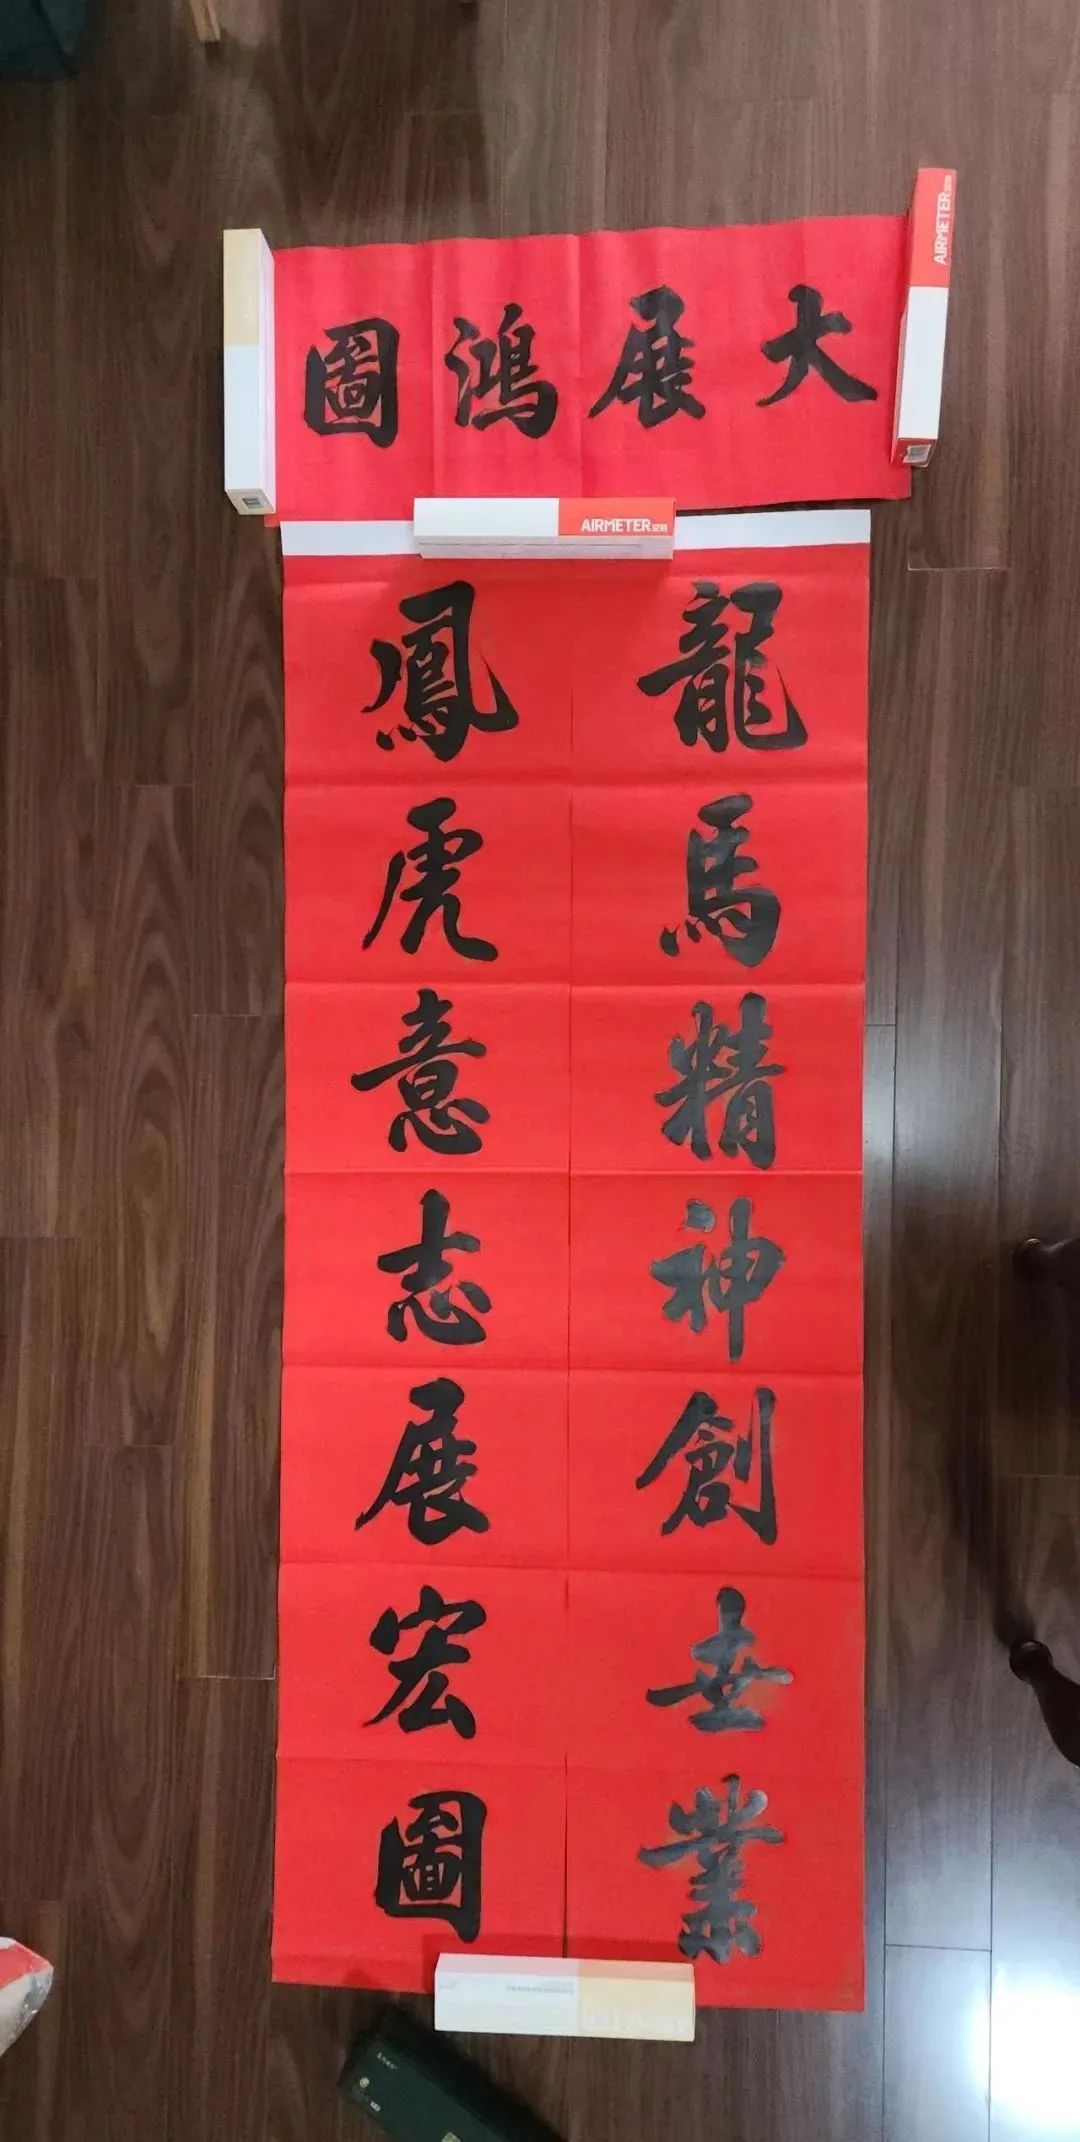 大展鴻圖
龍馬精神創世業
鳳虎意志展宏圖
AIRMETER
AIRMETER